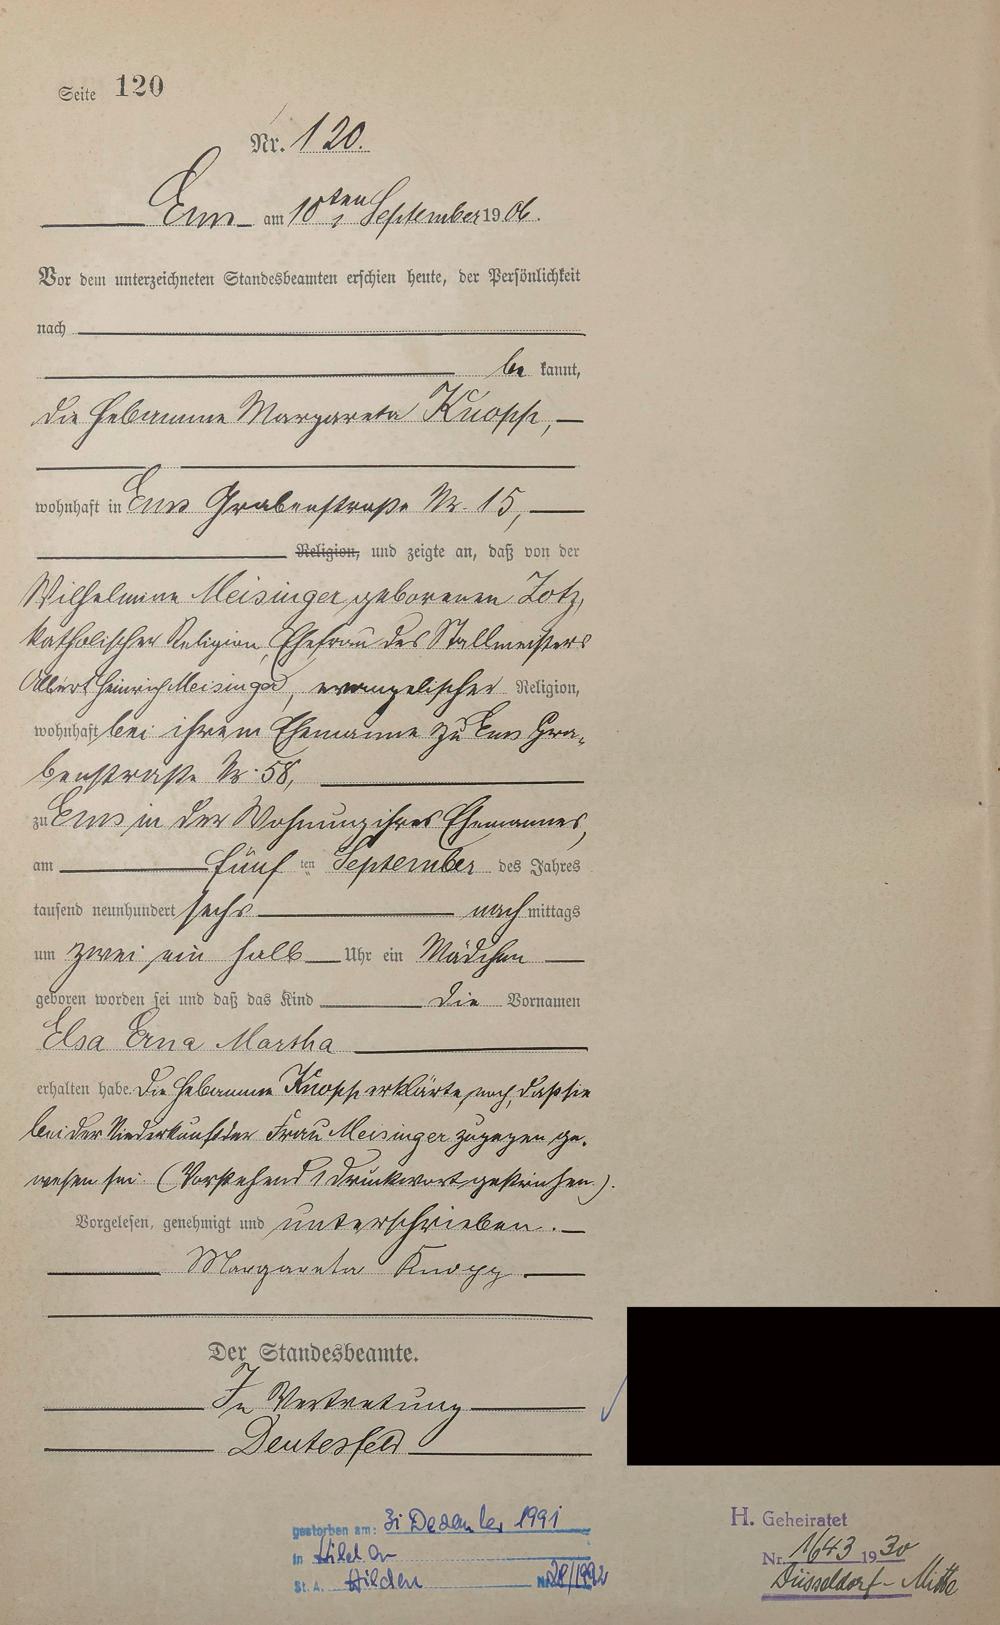 Seite 120
Nr. 120.
Ems am 10ten September 1906.
Vor dem unterzeichneten Standesbeamten erschien heute, der Persönlichkeit
nach
be kannt,
die Hebamme Margareta Knopp,
wohnhaft in Ems Grabenstraße Nr. 15,
Religion, und zeigte an, daß von der
Wilhelmine Meisinger geborenen Lotz,
katholischer Religion, Ehefrau des Stallmeisters
Albert Heinrich Meisinger, evangelischer Religion,
wohnhaft bei ihrem Ehemanne zu Ems Gra-
benstraße Nr. 58,
zu Ems in der Wohnung ihres Ehemannes,
am fünf ten September des Jahres
tausend neunhundert sechs nach mittags
um zwei ein halb Uhr ein Mädchen
geboren worden sei und daß das Kind die Vornamen
Elsa Erna Martha
erhalten habe. Die Hebamme Knopp erklärte noch, daß sie
bei der Niederkunft der Frau Meisinger zugegen ge-
wesen sei. (Vorstehend 1 Druckwort gestrichen.).
Vorgelesen, genehmigt und unterschrieben.
Margareta Knopp
Der Standesbeamte.
In Vertretung
Deutesfeld
gestorben am: 31 Dezember 1991
in Hilden
St. A. Hilden Nr. 28/1992
H. Geheiratet
Nr. 1643 1930
Düsseldorf-Mitte